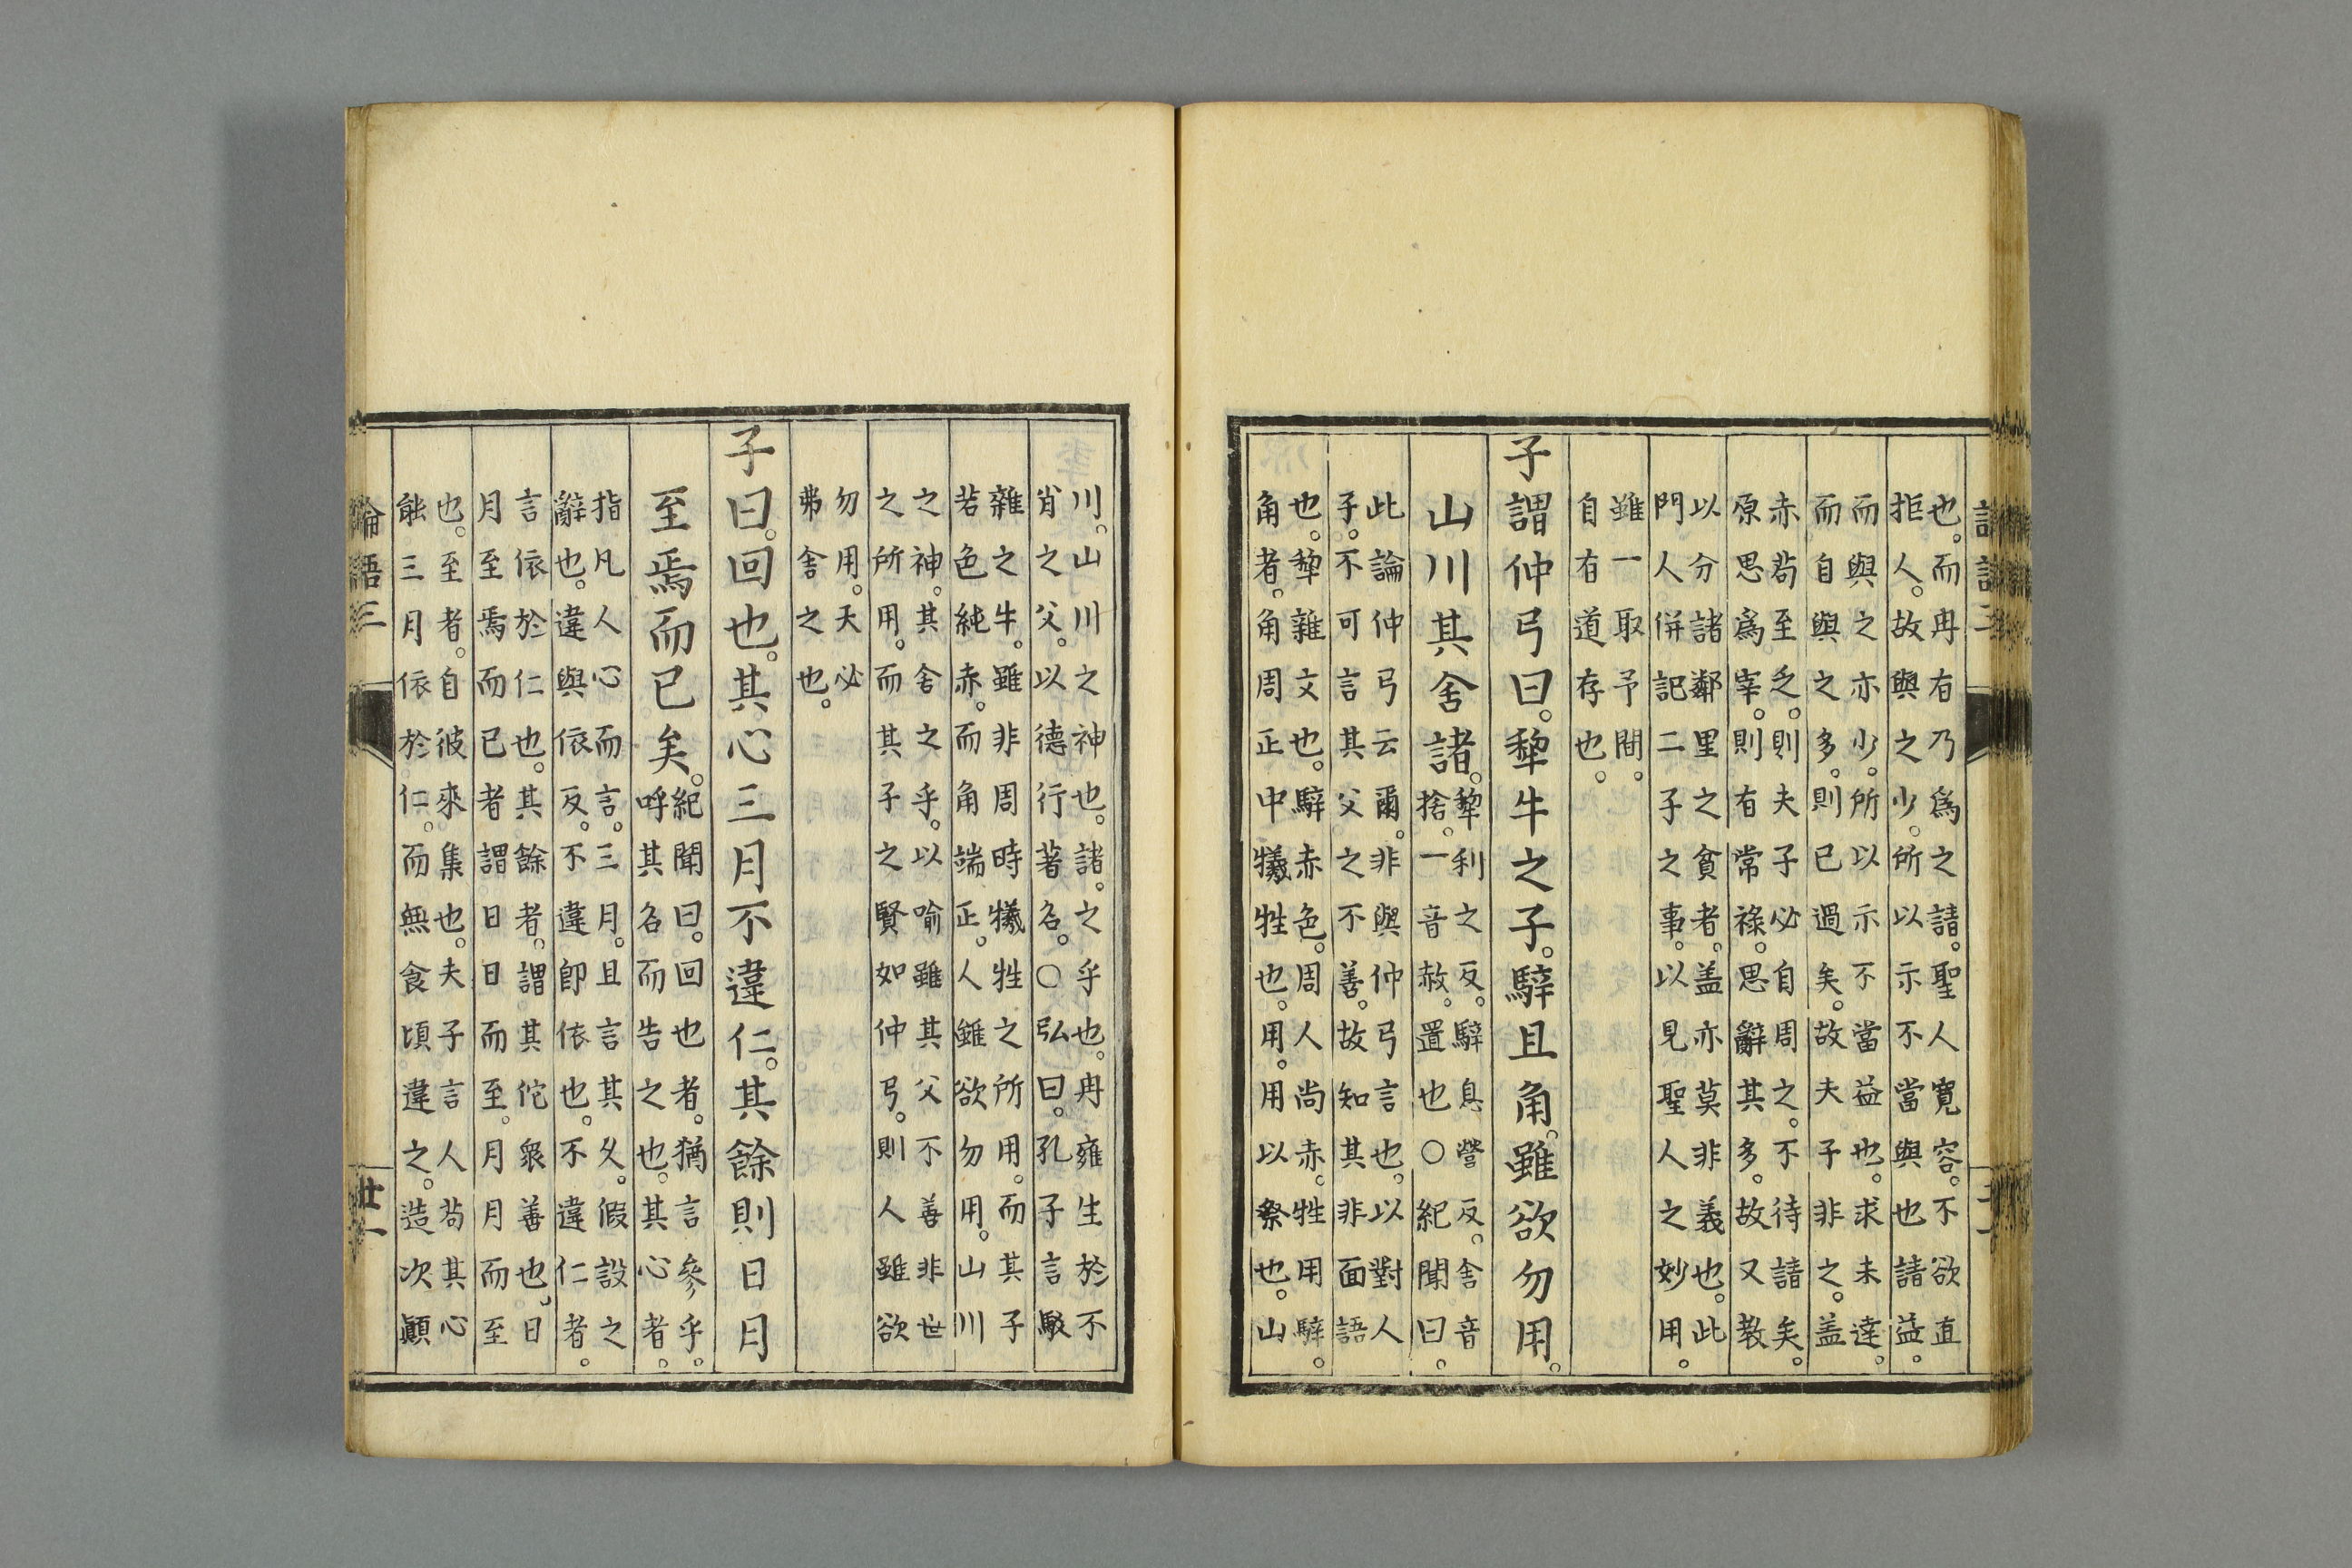 也。而冉有乃爲之請。聖人寛容。不欲直
拒人。故與之少。所以示不當與也請益。
而與之亦少。所以示不當益也。求未達。
而自與之多。則已過矣。故夫子非之。盖
赤苟至乏。則夫子必自周之。不待請矣。
原思爲宰。則有常祿。思辭其多。故又敎
以分諸鄰里之貧者。盖亦莫非義也。此
門人併記二子之事。以見聖人之妙用。
雖一取予間。
自有道存也。
子謂仲弓曰。犂牛之子。騂且角。雖欲勿用。
山川其舍諸。
犂利之反。騂息營反。舍音
捨。一音赦。置也〇紀聞曰。
此論仲弓云爾。非與仲弓言也。以對人
子。不可言其父之不善。故知其非面語
也。犂雜文也。騂赤色。周人尚赤。牲用騂。
角者。角周正中犧牲也。用。用以祭也。山
川。山川之神也。諸。之乎也。冉雍生於不
肖之父。以德行著名。〇弘曰。孔子言駁
雜之牛。雖非周時犧牲之所用。而其子
若色純赤。而角端正。人雖欲勿用。山川
之神。其舍之乎。以喩雖其父不善非世
之所用。而其子之賢如仲弓。則人雖欲
勿用。天必
弗舍之也。
子曰。回也。其心三月不違仁。其餘則日月
至焉而已矣。
紀聞曰。回也者。猶言參乎。
呼其名而告之也。其心者。
指凡人心而言。三月。且言其久。假設之
辭也。違與依反。不違卽依也。不違仁者。
言依於仁也。其餘者。謂其佗衆善也。日
月至焉而已者謂日日而至。月月而至
也。至者。自彼來集也。夫子言人苟其心
能三月依於仁。而無食頃違之。造次顚
論語三
廿一